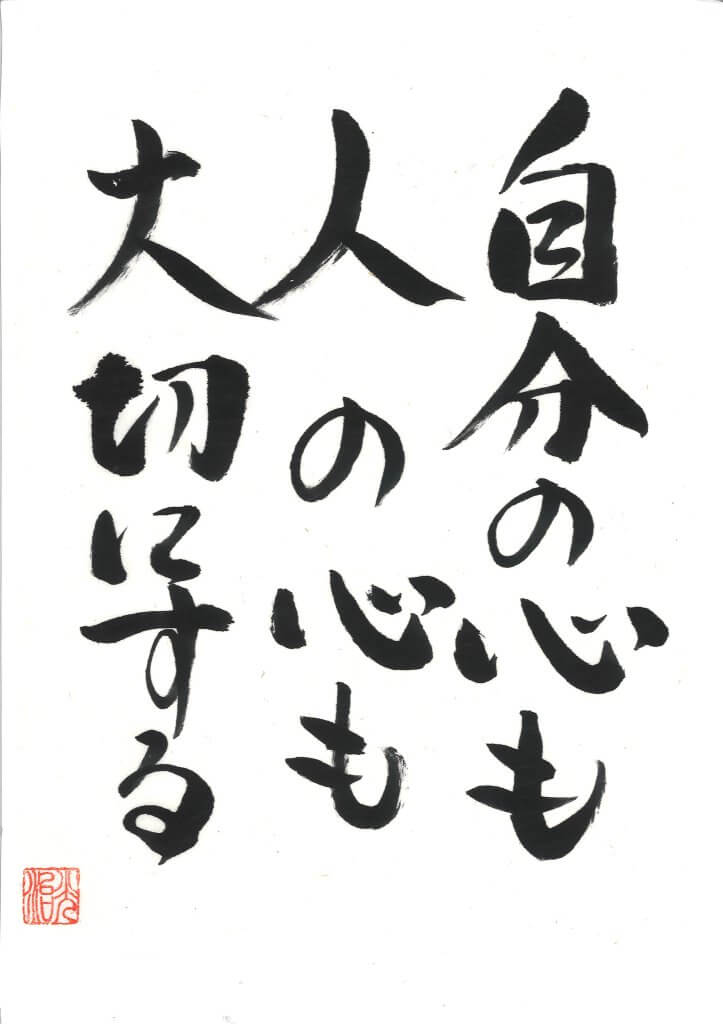 自分の心も
人の心も
大切にする